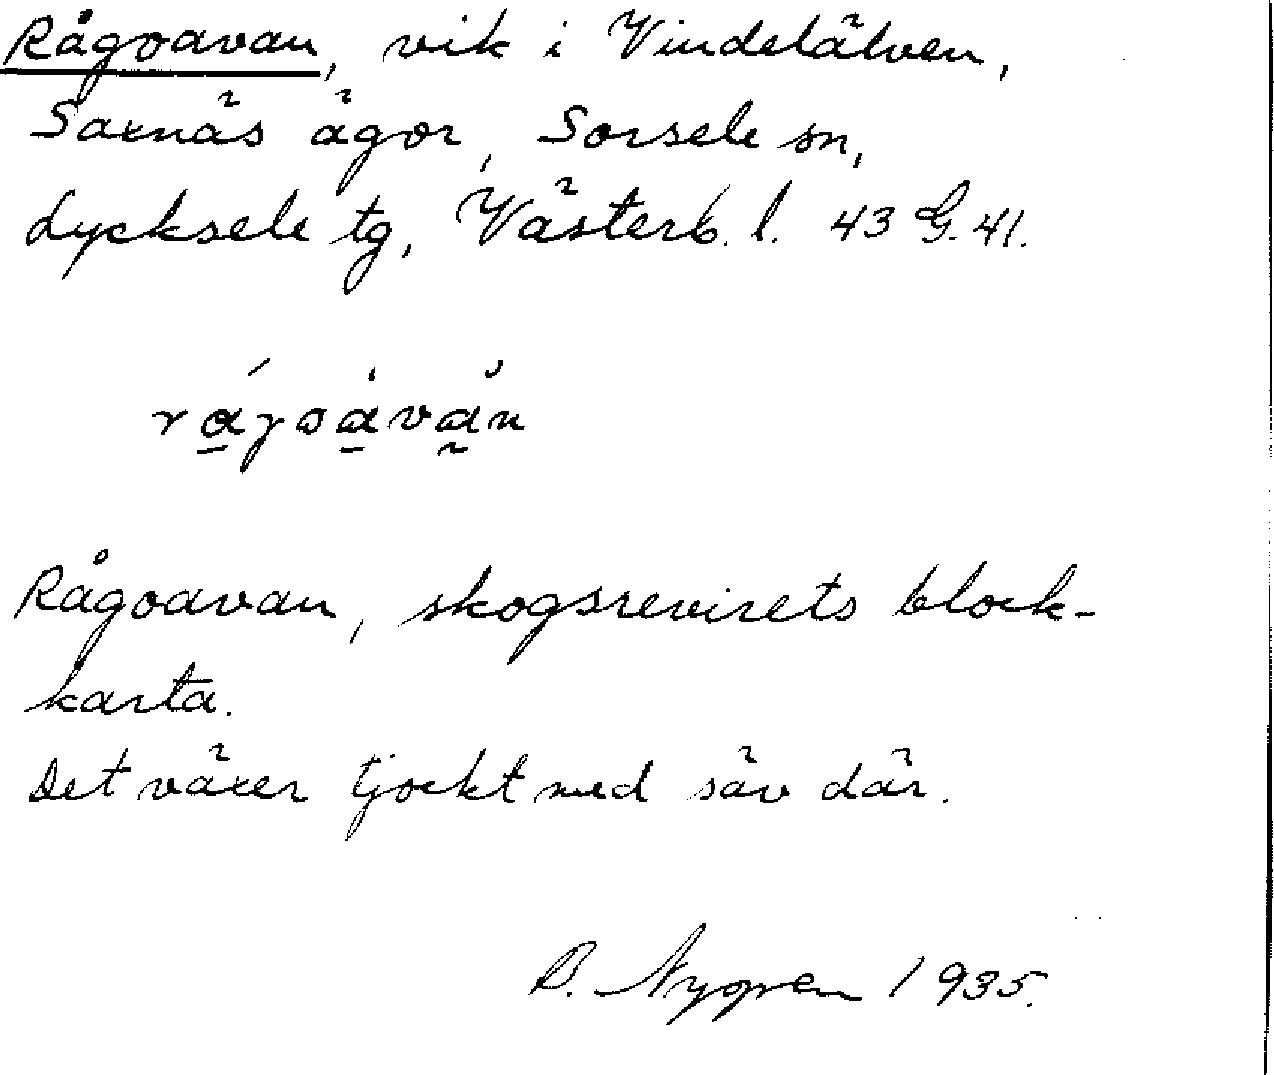 Rågoavan, vik i Vindelälven,
Saxnäs ägor, Sorsele sn,
Lycksele tg, Västerb. l. 43 G. 41.
Rågoavan, skogsrevirets block-
karta.
Det växer tjockt med säv där.
B. Nygren 1935.